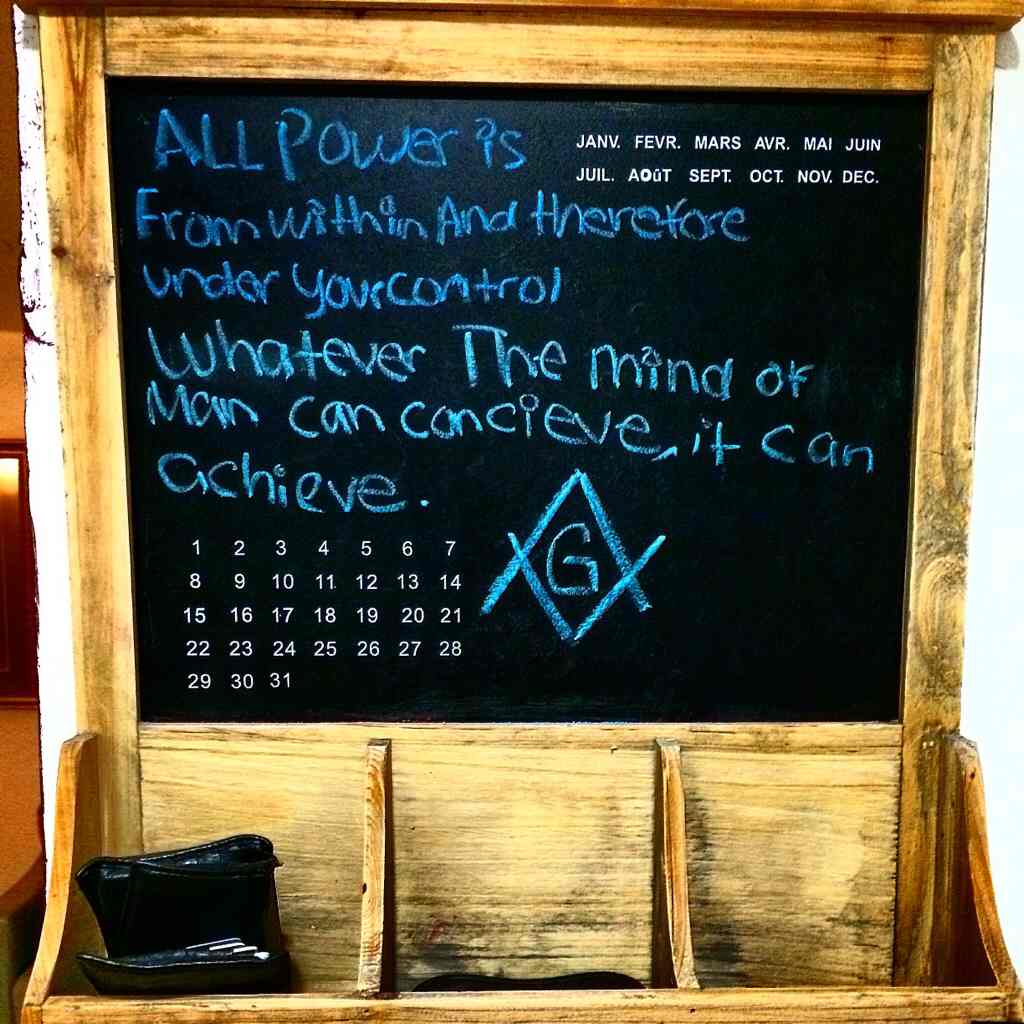 ALL Power is
JANV. FEVR. MARS AVR. MAI JUIN
JUIL. AOûT SEPT. OCT. NOV. DEC.
From within And therefore
under your control
Whatever The mind of
Man can concieve, it can
achieve.
1 2 3 4 5 6 7
8 9 10 11 12 13 14
15 16 17 18 19 20 21
22 23 24 25 26 27 28
29 30 31
G